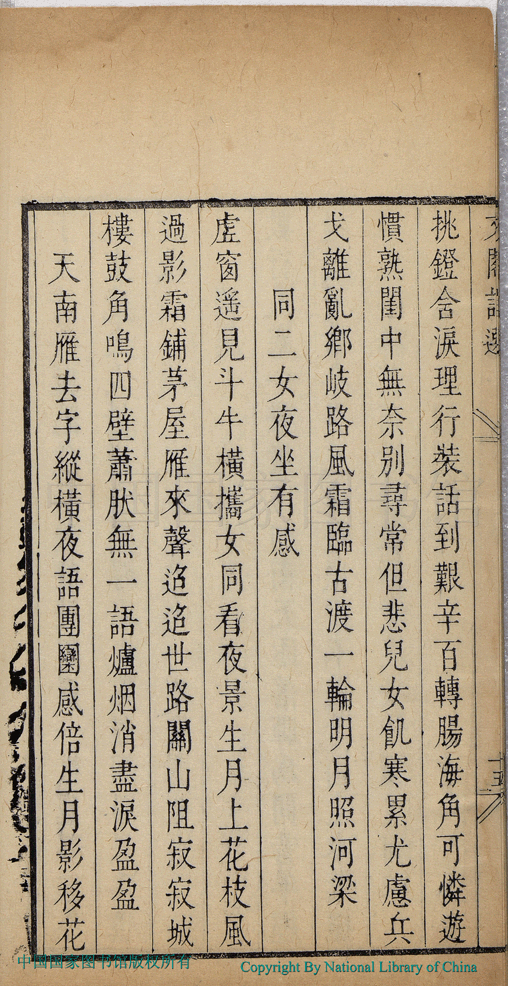 挑鐙含淚理行裝話到艱辛百轉腸海角可憐遊
慣熟閨中無奈別尋常但悲兒女飢寒累尤慮兵
戈離亂鄉岐路風霜臨古渡一輪明月照河梁
同二女夜坐有感
虛窗遥見斗牛橫攜女同看夜景生月上花枝風
過影霜鋪茅屋雁來聲迢迢世路關山阻寂寂城
樓鼓角鳴四壁蕭肰無一語爐烟消盡淚盈盈
天南雁去字縱橫夜語團圞感倍生月影移花
中国国家图书馆版权所有
Copyright By National Library of China